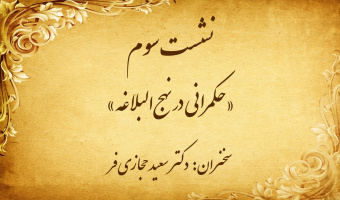 نشست سوم
«حکمرانی در نهج البلاغه»
سخنران: دکتر سعید حجازی فر